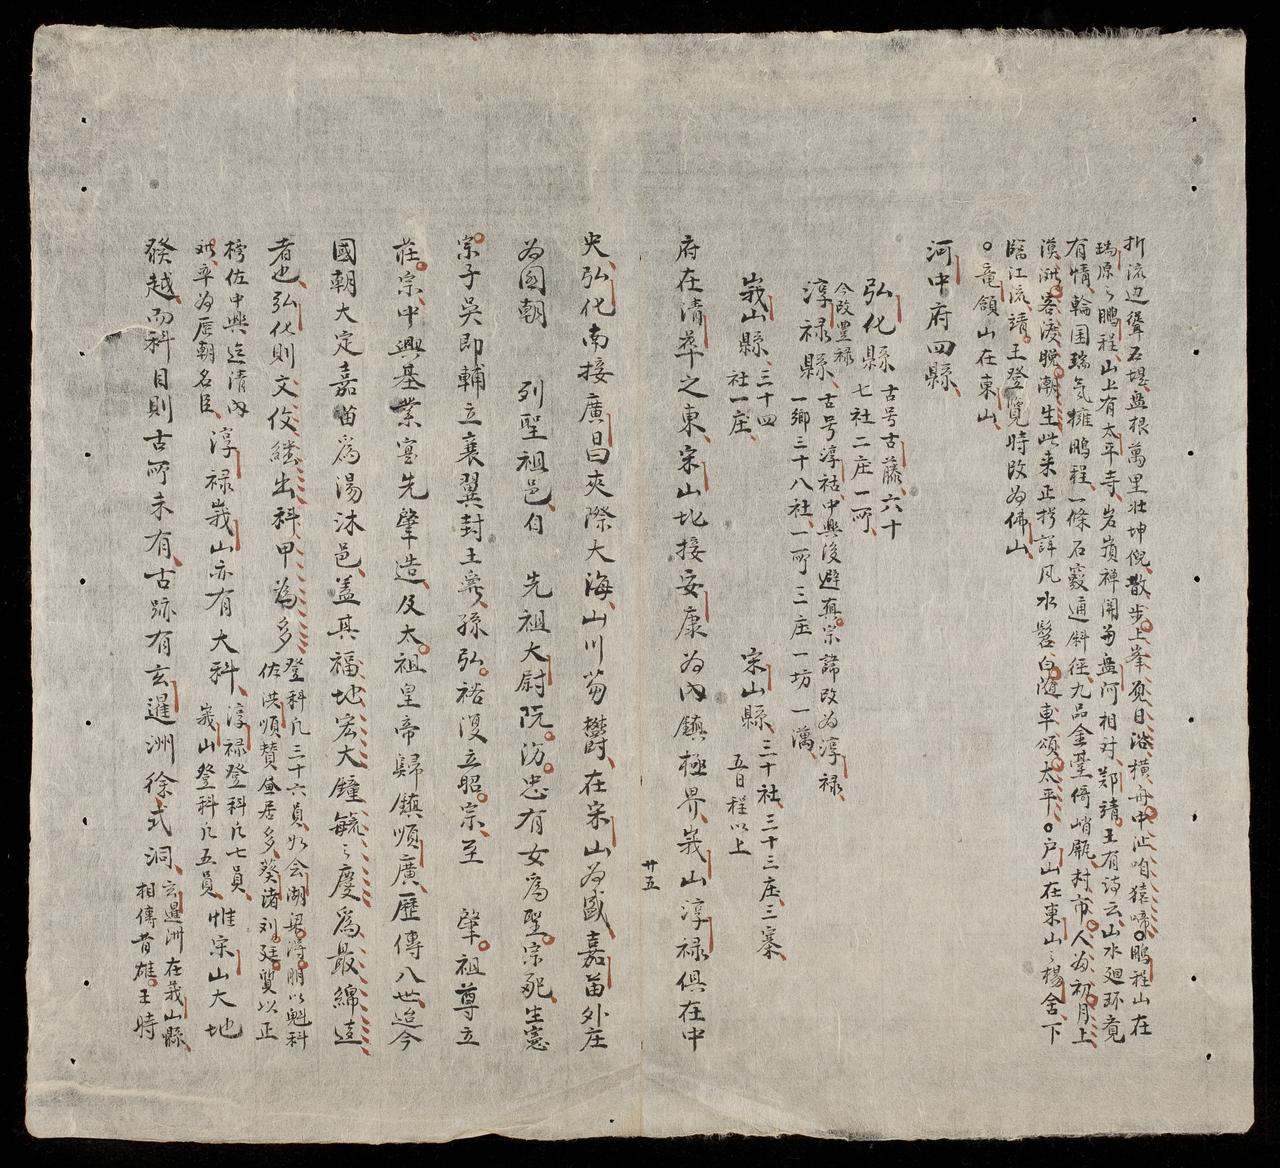 折流边聳石堤盘根萬里壯坤倪散步上峯覓日浴橫舟中沚咱猿啼○鵬程山在
瑞原之鵬程山上有太平寺岩嶺禅開萄盘河相对鄭靖王有詩云山水廻环竟
有情輪囷瑞气擁鵬程一條石竅通斜徑九品金臺倚峭甌村市人初月上
漠㴜客渡晚潮生此来正挬詳风水髻白随車頌太平○户山在東山之楊舍下
臨江流靖王登覽時改为佛山
○竜領山在東山
河中府四縣
弘化縣 古号古藤六十
七社二庄一所
今改置禄
淳禄縣 古号淳祐中興後避真宗諱改为淳禄
一鄉三十八社一所三庄一坊一澫
峩山縣 三十四
社一庄
宋山縣 三十社三十三庄三寨
五日程以上
府在清華之東宋山北接安康为內鎮極界峩山淳禄俱在中
央弘化南接廣昌夾際大海山川蒭欝在宋山为盛嘉苗外庄
为国朝 列聖祖邑自 先祖大尉阮汸忠有女爲聖宗配生憲
宗子吳即輔立襄翼封王孫弘裕復立昭宗至 肇祖尊立
莊宗中興基業寔先肇造及太祖皇帝歸鎮順廣歷傳八世迨今
國朝大定嘉苗爲湯沐邑盖其福地宏大鐘毓之慶爲最綿遠
者也弘化則文佼継出科甲为多 登科凡三十六員如会湖梁得朋以魁科
佐洪順賛盛居多葵渚刘廷質以正
榜佐中興迄清內
㴜卒为歷朝名臣 淳禄峩山亦有大科 淳禄登科凡七員
峩山登科凡五員 惟宗山大地
發越而科目則古所未有古跡有玄暹洲徐式洞 玄暹洲在峩山縣
相傳昔雄王時
廿五